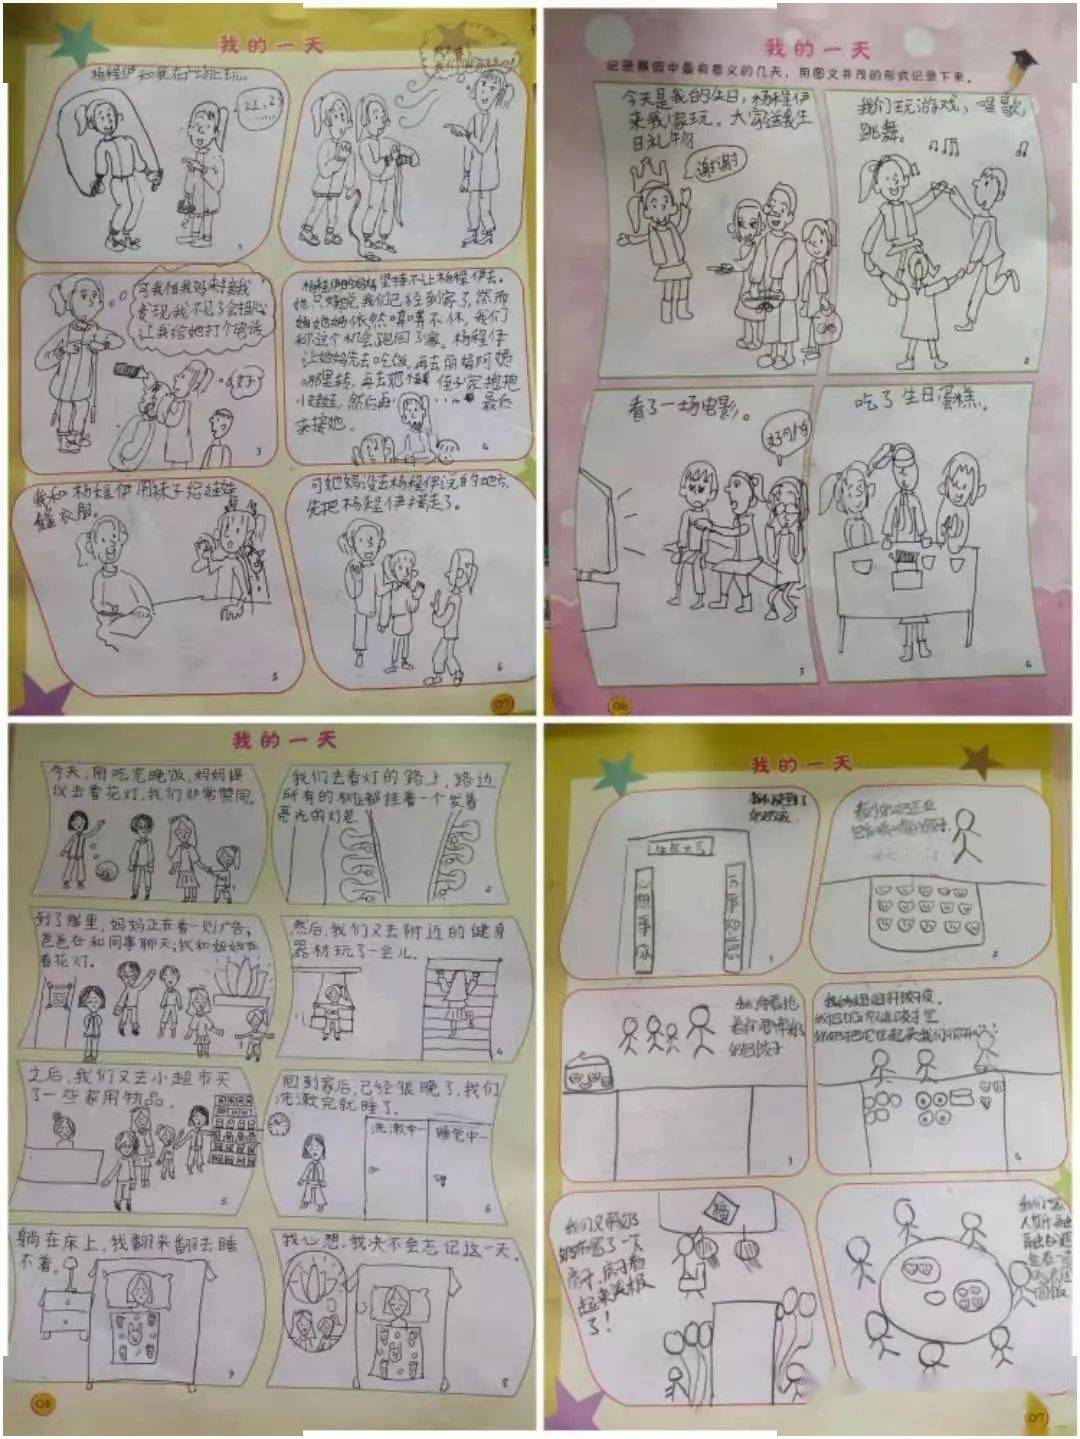 我的一天
杨程伊和我在一起玩。
22,23
……
1
可我怕我妈来接我
发现我不见了会担心
让我给她打个电话
3
坚持不让杨程伊去。
她只好说我们已经到家了,然而
依然唠唠不休,我们
这个机会跑回了家。杨程伊
让她妈先去吃饭,再去丽娟阿姨
那里转,再去她
小娃娃,然后再……最后
来接她。
4
我和杨程伊用袜子给娃娃
缝衣服。
5
可她妈没去杨程伊说的地方,
先把杨程伊接走了。
6
07
我的一天
记录寒假中最有意义的几天,用图文并茂的形式记录下来。
今天是我的生日,杨程伊
来我家玩。大家送我生
日礼物
谢谢
1
我们玩游戏,唱歌,
跳舞。
2
看了一场电影。
3
吃了生日蛋糕。
4
06
我的一天
今天,刚吃完晚饭,妈妈提
议去看花灯,我们非常赞同。
1
我们去看灯的路上,路边
所有的树都挂着一个发着
亮光的灯笼
2
到了那里,妈妈正在看一则广告,
爸爸在和同事聊天,我和姐姐在
看花灯。
然后,我们又去附近的健身
器材玩了一会儿。
4
之后,我们又去小超市买
了一些家用物品。
5
回到家后,已经很晚了,我们
洗漱完就睡了。
洗漱中
睡觉中
6
躺在床上,我翻来翻去睡
不着。
7
我心想,我决不会忘记这一天。
8
08
我的一天
心想事成
万事如意
1
看到奶奶正在
2
3
我的姐姐
4
我们又帮奶
奶布置了一下
房子,房子看
起来美极
了!
福
我们一家
07